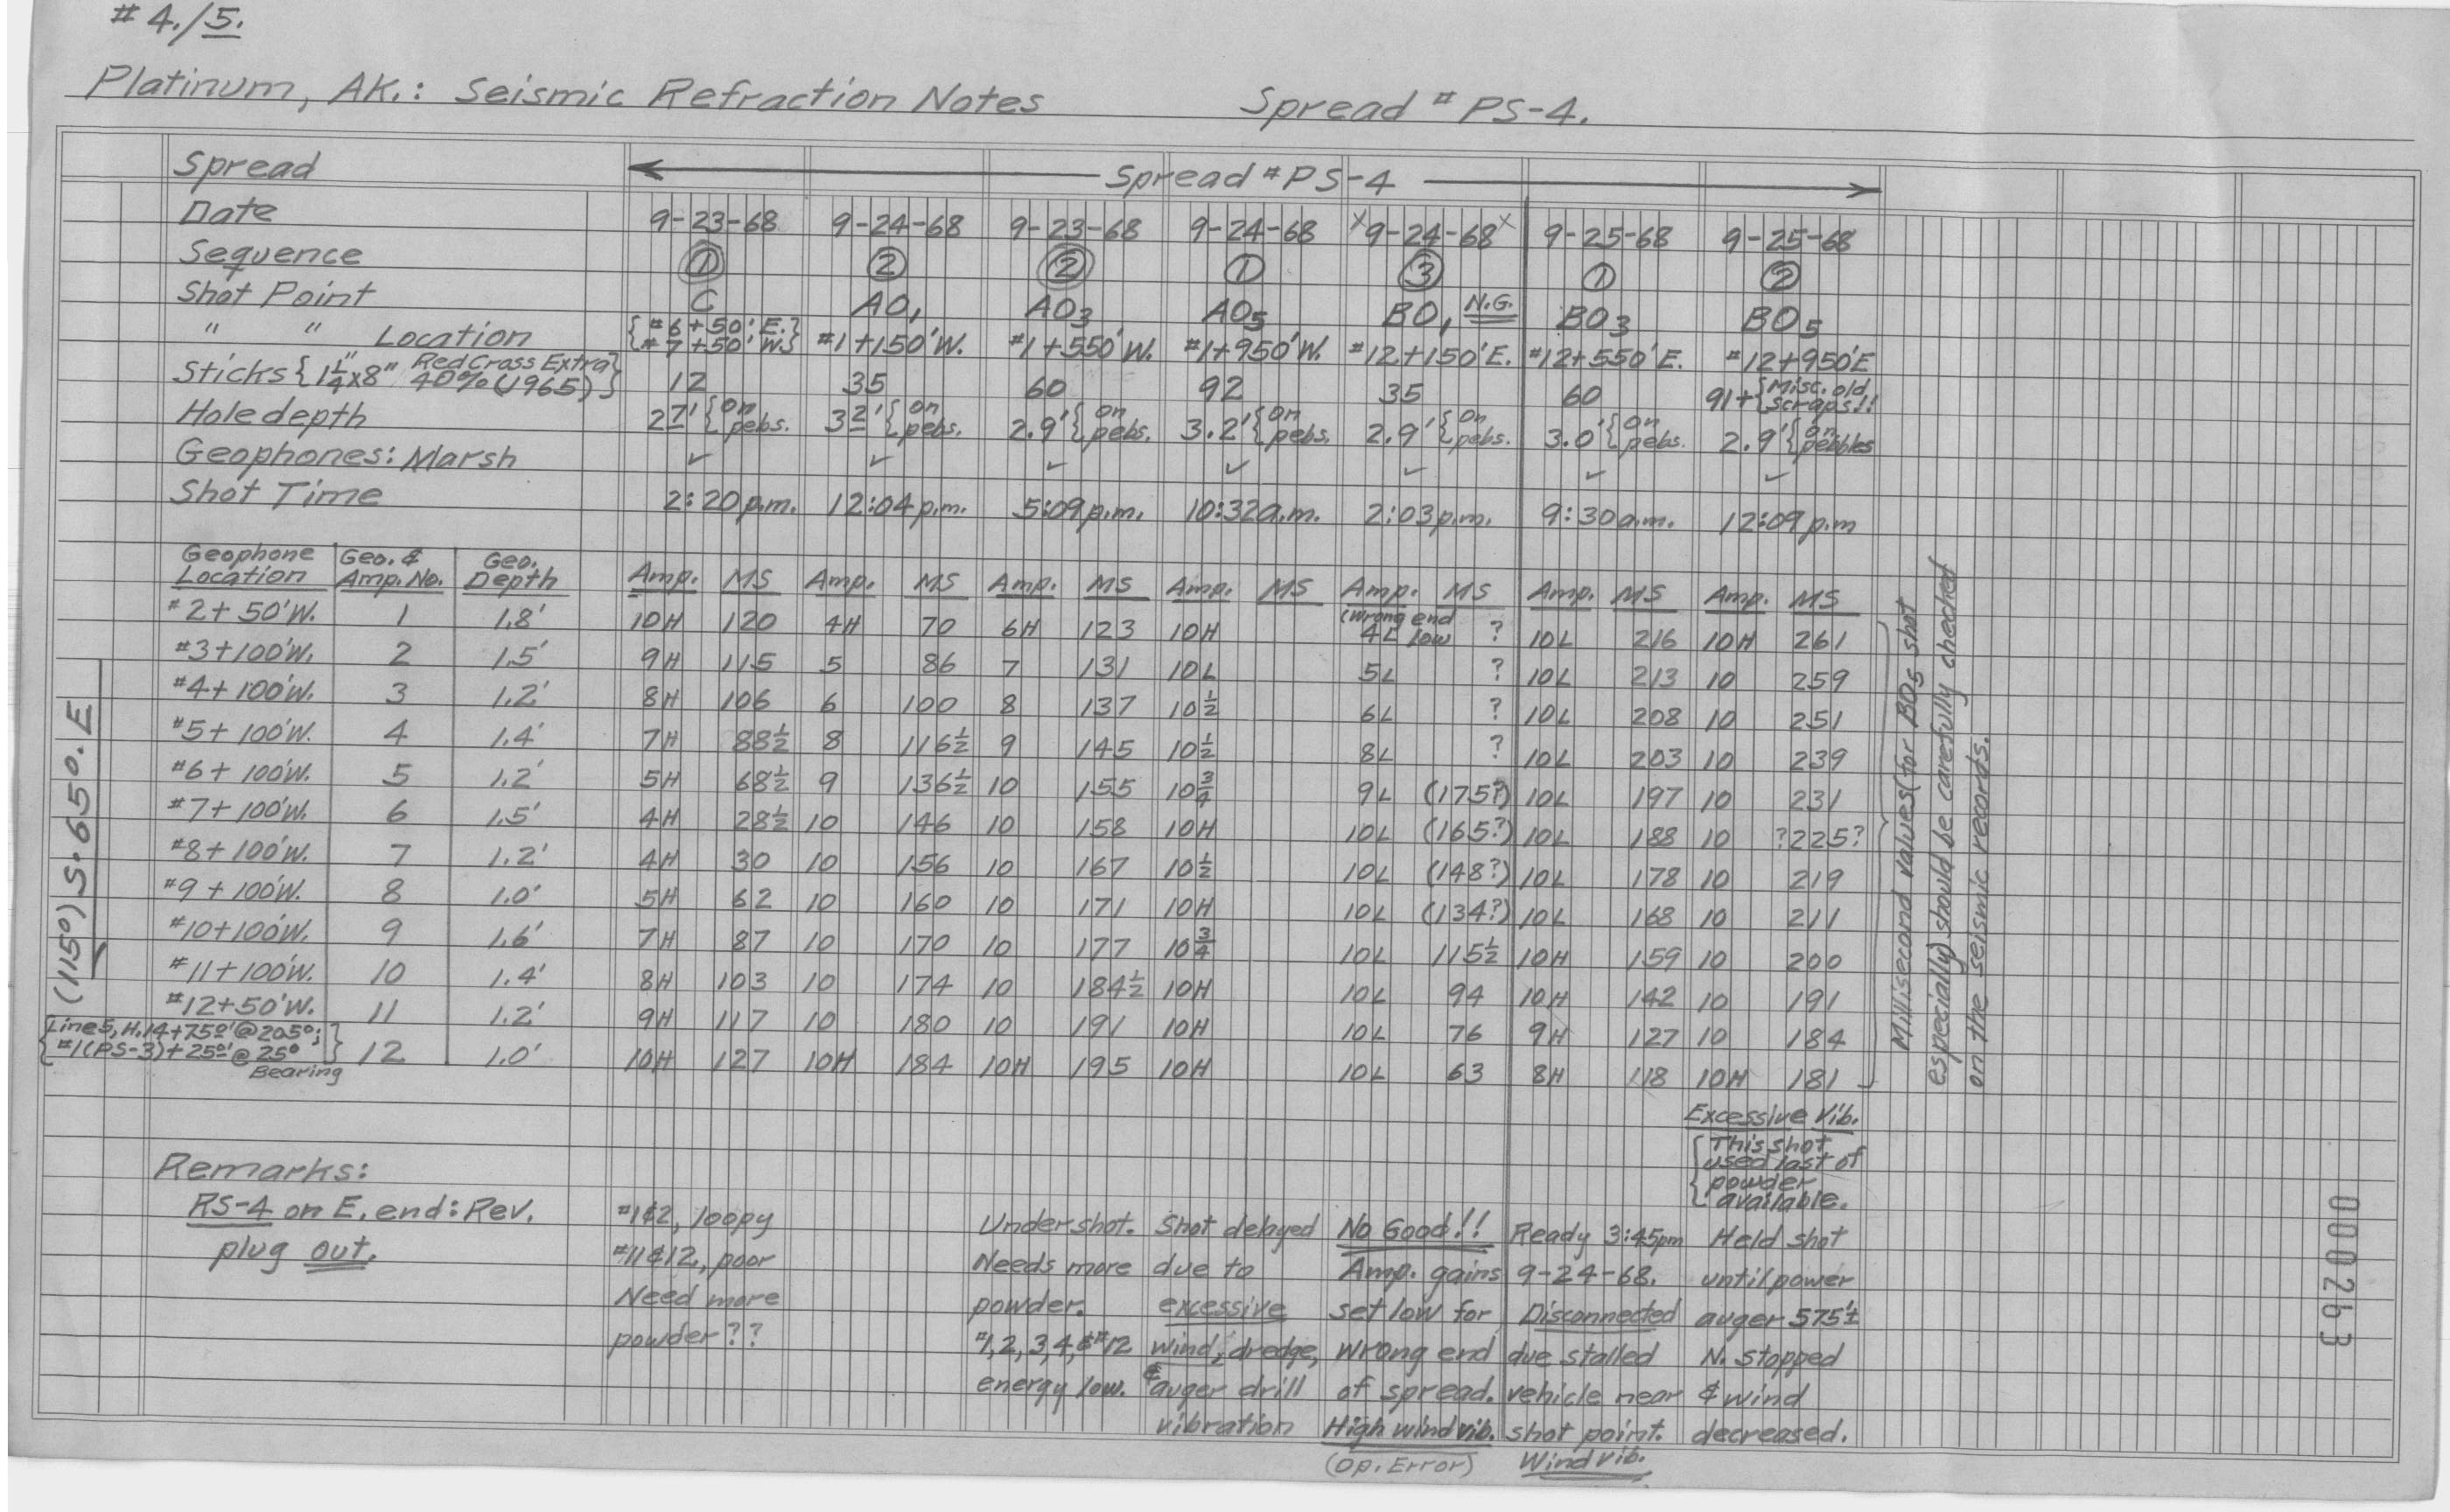 # 4./5.
Platinum, AK.: Seismic Refraction Notes Spread # PS-4.
Spread Spread # PS-4
Date 9-23-68 9-24-68 9-23-68 9-24-68 x9-24-68x 9-25-68 9-25-68
Sequence 1 2 2 1 3 1 2
Shot Point C AO1 AO3 AO5 BO1 N.G. BO3 BO5
" " Location {#6+50' E.} {#7+50' W.} #1+150'W. #1+550'W. #1+950'W. #12+150'E. #12+550'E. #12+950'E
Sticks {1 1/4"x8" Red Cross Extra 40% (1965)} 12 35 60 92 35 60 91+ {Misc. old scraps!!
Hole depth 27' {on pebs. 32' {on pebs. 2.9' {on pebs. 3.2' {on pebs. 2.9' {on pebs. 3.0' {on pebs. 2.9' {on pebbles
Geophones: Marsh ✓ ✓ ✓ ✓ ✓ ✓ ✓
Shot Time 2:20p.m. 12:04p.m. 5:09p.m. 10:32a.m. 2:03p.m. 9:30a.m. 12:09p.m
Geophone Location Geo. & Amp. No. Geo. Depth Amp. MS Amp. MS Amp. MS Amp. MS Amp. MS Amp. MS Amp. MS
#2+ 50'W. 1 1.8' 10H 120 4H 70 6H 123 10H (Wrong end 4L low ? 10L 216 10H 261
#3+100'W. 2 1.5' 9H 115 5 86 7 131 10L 5L ? 10L 213 10 259
#4+100'W. 3 1.2' 8H 106 6 100 8 137 10½ 6L ? 10L 208 10 251
#5+ 100'W. 4 1.4' 7H 88½ 8 116½ 9 145 10½ 8L ? 10L 203 10 239
#6+ 100'W. 5 1.2' 5H 68½ 9 136½ 10 155 10¾ 9L (175?) 10L 197 10 231
#7+100'W. 6 1.5' 4H 28½ 10 146 10 158 10H 10L (165?) 10L 188 10 ?225?
#8+100'W. 7 1.2' 4H 30 10 156 10 167 10½ 10L (148?) 10L 178 10 219
#9 + 100'W. 8 1.0' 5H 62 10 160 10 171 10H 10L (134?) 10L 168 10 211
#10+100'W. 9 1.6' 7H 87 10 170 10 177 10¾ 10L 115½ 10H 159 10 200
#11+100'W. 10 1.4' 8H 103 10 174 10 184½ 10H 10L 94 10H 142 10 191
#12+50'W. 11 1.2' 9H 117 10 180 10 191 10H 10L 76 9H 127 10 184
{Line 5, H.14+75º'@205°; #1(PS-3)+25º'@25° Bearing} 12 1.0' 10H 127 10H 184 10H 195 10H 10L 63 8H 118 10H 181
(115°) S. 65°. E
Millisecond values (for BO5 shot
especially) should be carefully checked
on the seismic records.
Excessive Vib.
{This shot
used last of
powder
available.
Remarks:
RS-4 on E. end: Rev.
plug out.
#1&2, loopy
#11&12, poor
Need more
powder??
Undershot.
Needs more
powder.
#1,2,3,4,&#12
energy low.
Shot delayed
due to
excessive
wind, dredge,
& auger drill
vibration
No Good!!
Amp. gains
set low for
wrong end
of spread.
High wind vib.
(Op. Error)
Ready 3:45pm
9-24-68.
Disconnected
due stalled
vehicle near
shot point.
Wind vib.
Held shot
until power
auger 575'±
N. stopped
& wind
decreased.
000263